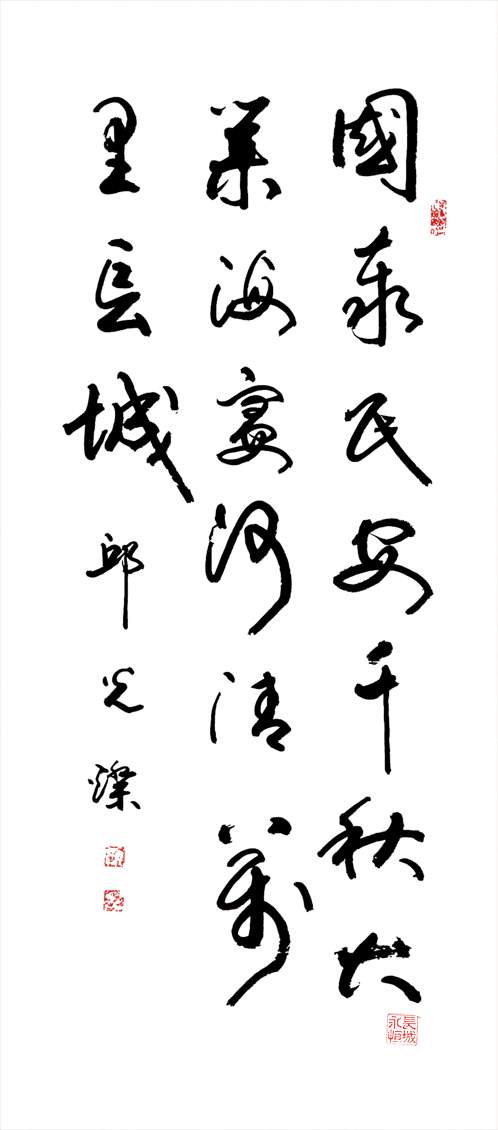 國泰民安千秋大
業海宴河清萬
里長城
邱光燦
長城
永恒